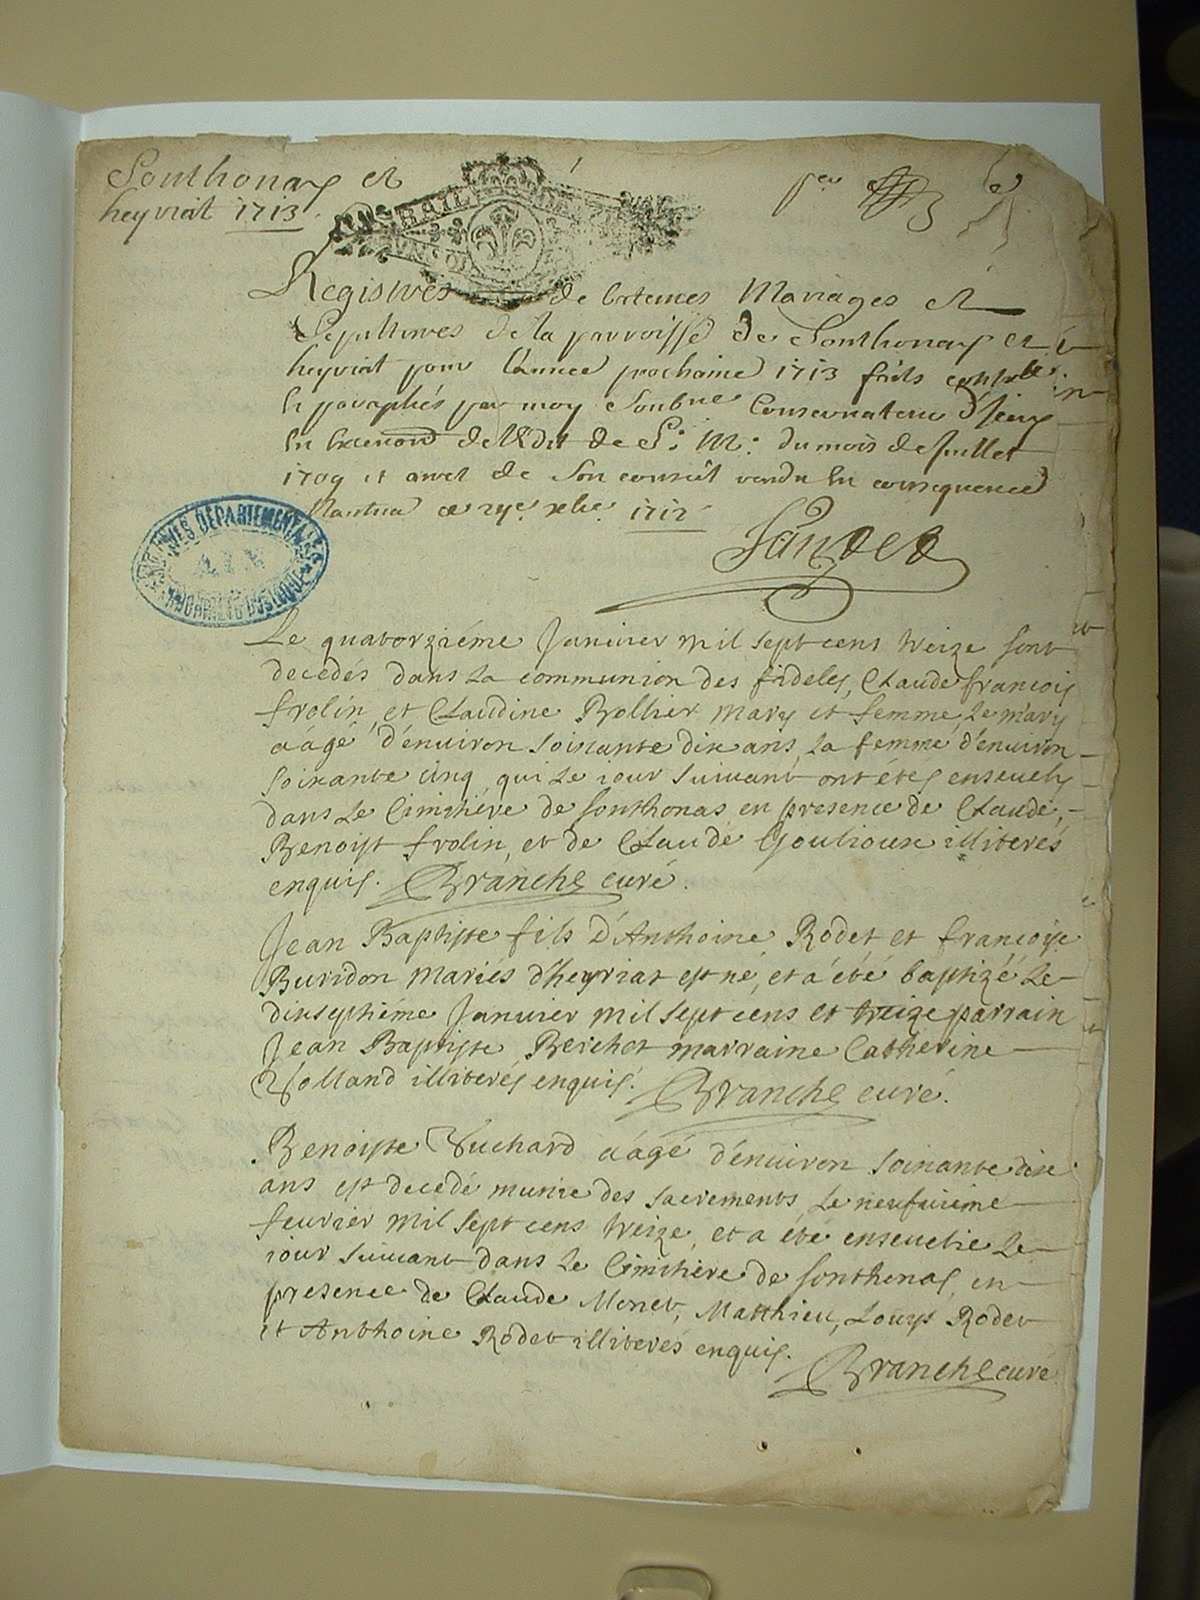 Sonthonax et
heyriat 1713.
Registres de batemes Mariages et
Sepultures de la parroisse de Sonthonax et
heyriat pour l'année prochaine 1713
paraphés par moy Conservateur
de l'Edit de S: M: du mois de Juillet
1709 et arret de Son conseil rendu en consequence
Nantua ce 1712
Le quatorziéme Januier mil sept cens treize sont
decedés dans la communion des fideles, Claude françois
frolin, et Claudine Bollier mary et femme, le mary
aâgé d'enuiron soixante dix ans, la femme d'enuiron
soixante cinq, qui le iour suiuant ont étés enseuelis
dans le Cimitiére de sonthonas, en presence de Claude,
Benoist frolin, et de Claude Goulioux illiterés
enquis. Branche curé.
Jean Baptiste fils d'Anthoine Rodet et françoise
Buridon mariés d'heyriat est né, et a été baptizé le
dixseptiéme Januier mil sept cens et treize parrain
Jean Baptiste Berchet marraine Catherine
Volland illiterés enquis. Branche curé.
Benoiste Vuchard aâgé d'enuiron soixante dix
ans est decedé munie des sacrements, le neufuieme
feurier mil sept cens treize, et a été enseuelie le
iour suiuant dans le Cimitiére de sonthonas, en
presence de Claude Monet, Matthieu, Louys Rodet
et Anthoine Rodet illiterés enquis.
Branche curé
ARCHIVES DÉPARTEMENTALES
AIN